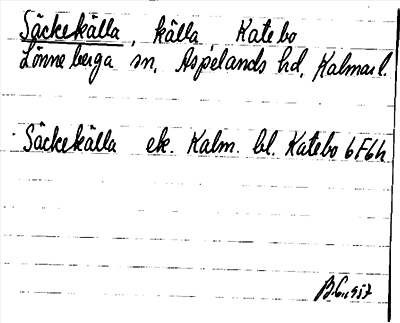 Säckekälla, källa, Katebo
Lönneberga sn, Aspelands hd, Kalmar l.
Säckekälla ek. Kalm. bl. Katebo 6F6h